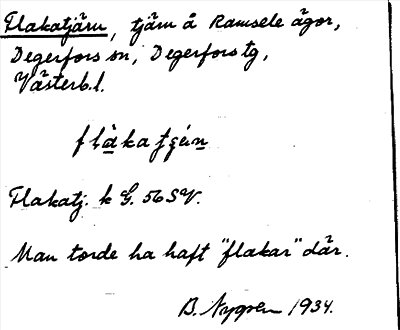 Flakatjärn, tjärn å Ramsele ägor,
Degerfors sn, Degerfors tg,
Västerb.l.
flàkatʃæ̀n
Flakatj. k G. 56 SV.
Man torde ha haft "flakar" där.
B. Nygren 1934.